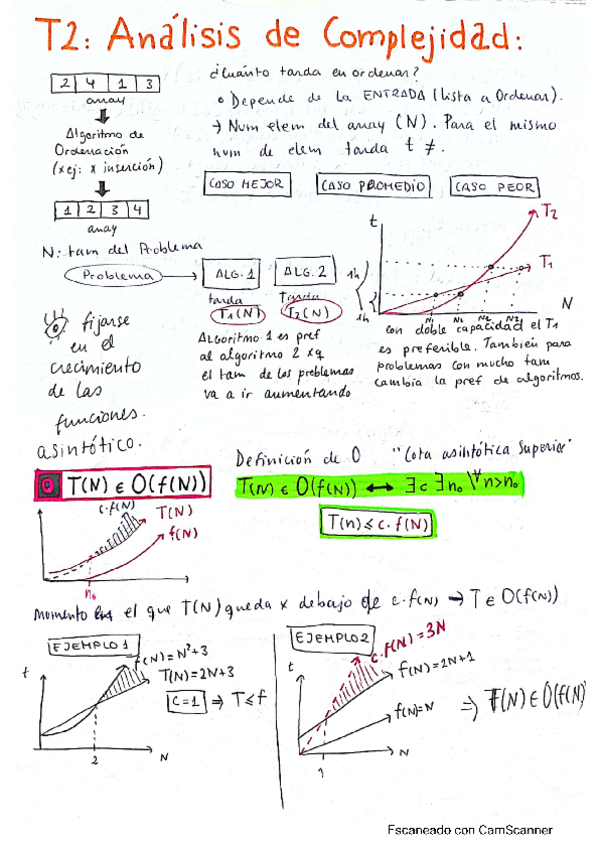 T2: Análisis de Complejidad:
2 4 1 3
array
Algoritmo de
Ordenación
(x ej: x inserción)
1 2 3 4
array
¿Cuánto tarda en ordenar?
Depende de la ENTRADA (lista a Ordenar).
→ Num elem del array (N). Para el mismo
num de elem tarda t ≠.
CASO MEJOR CASO PROMEDIO CASO PEOR
N: tam del Problema
Problema → ALG. 1 ALG. 2
tarda Tarda
T₁(N) T₂(N)
Algoritmo 1 es pref
al algoritmo 2 xq
el tam de los problemas
va a ir aumentando
t T₂
T₁
1h
1h
N₁ N₂ N₂ N
con doble capacidad el T₁
es preferible. También para
problemas con mucho tam
cambia la pref de algoritmos.
fijarse
en el
crecimiento
de las
funciones.
asintótico.
O T(N) ∈ O(f(N))
Definición de O "Cota asintótica superior"
T(N) ∈ O(f(N)) ↔ ∃c ∃n₀ ∀n>n₀
T(n) ≤ c.f(N)
c.f(N) T(N)
f(N)
n₀
Momento en el que T(N) queda x debajo de c.f(N) → T ∈ O(f(N))
EJEMPLO 1
f(N)=N²+3
T(N)=2N+3
C=1 ⇒ T≤f
t
2 N
EJEMPLO 2
c.f(N)=3N
f(N)=2N+1
f(N)=N
⇒ T(N) ∈ O(f(N)
t
1 N
Escaneado con CamScanner